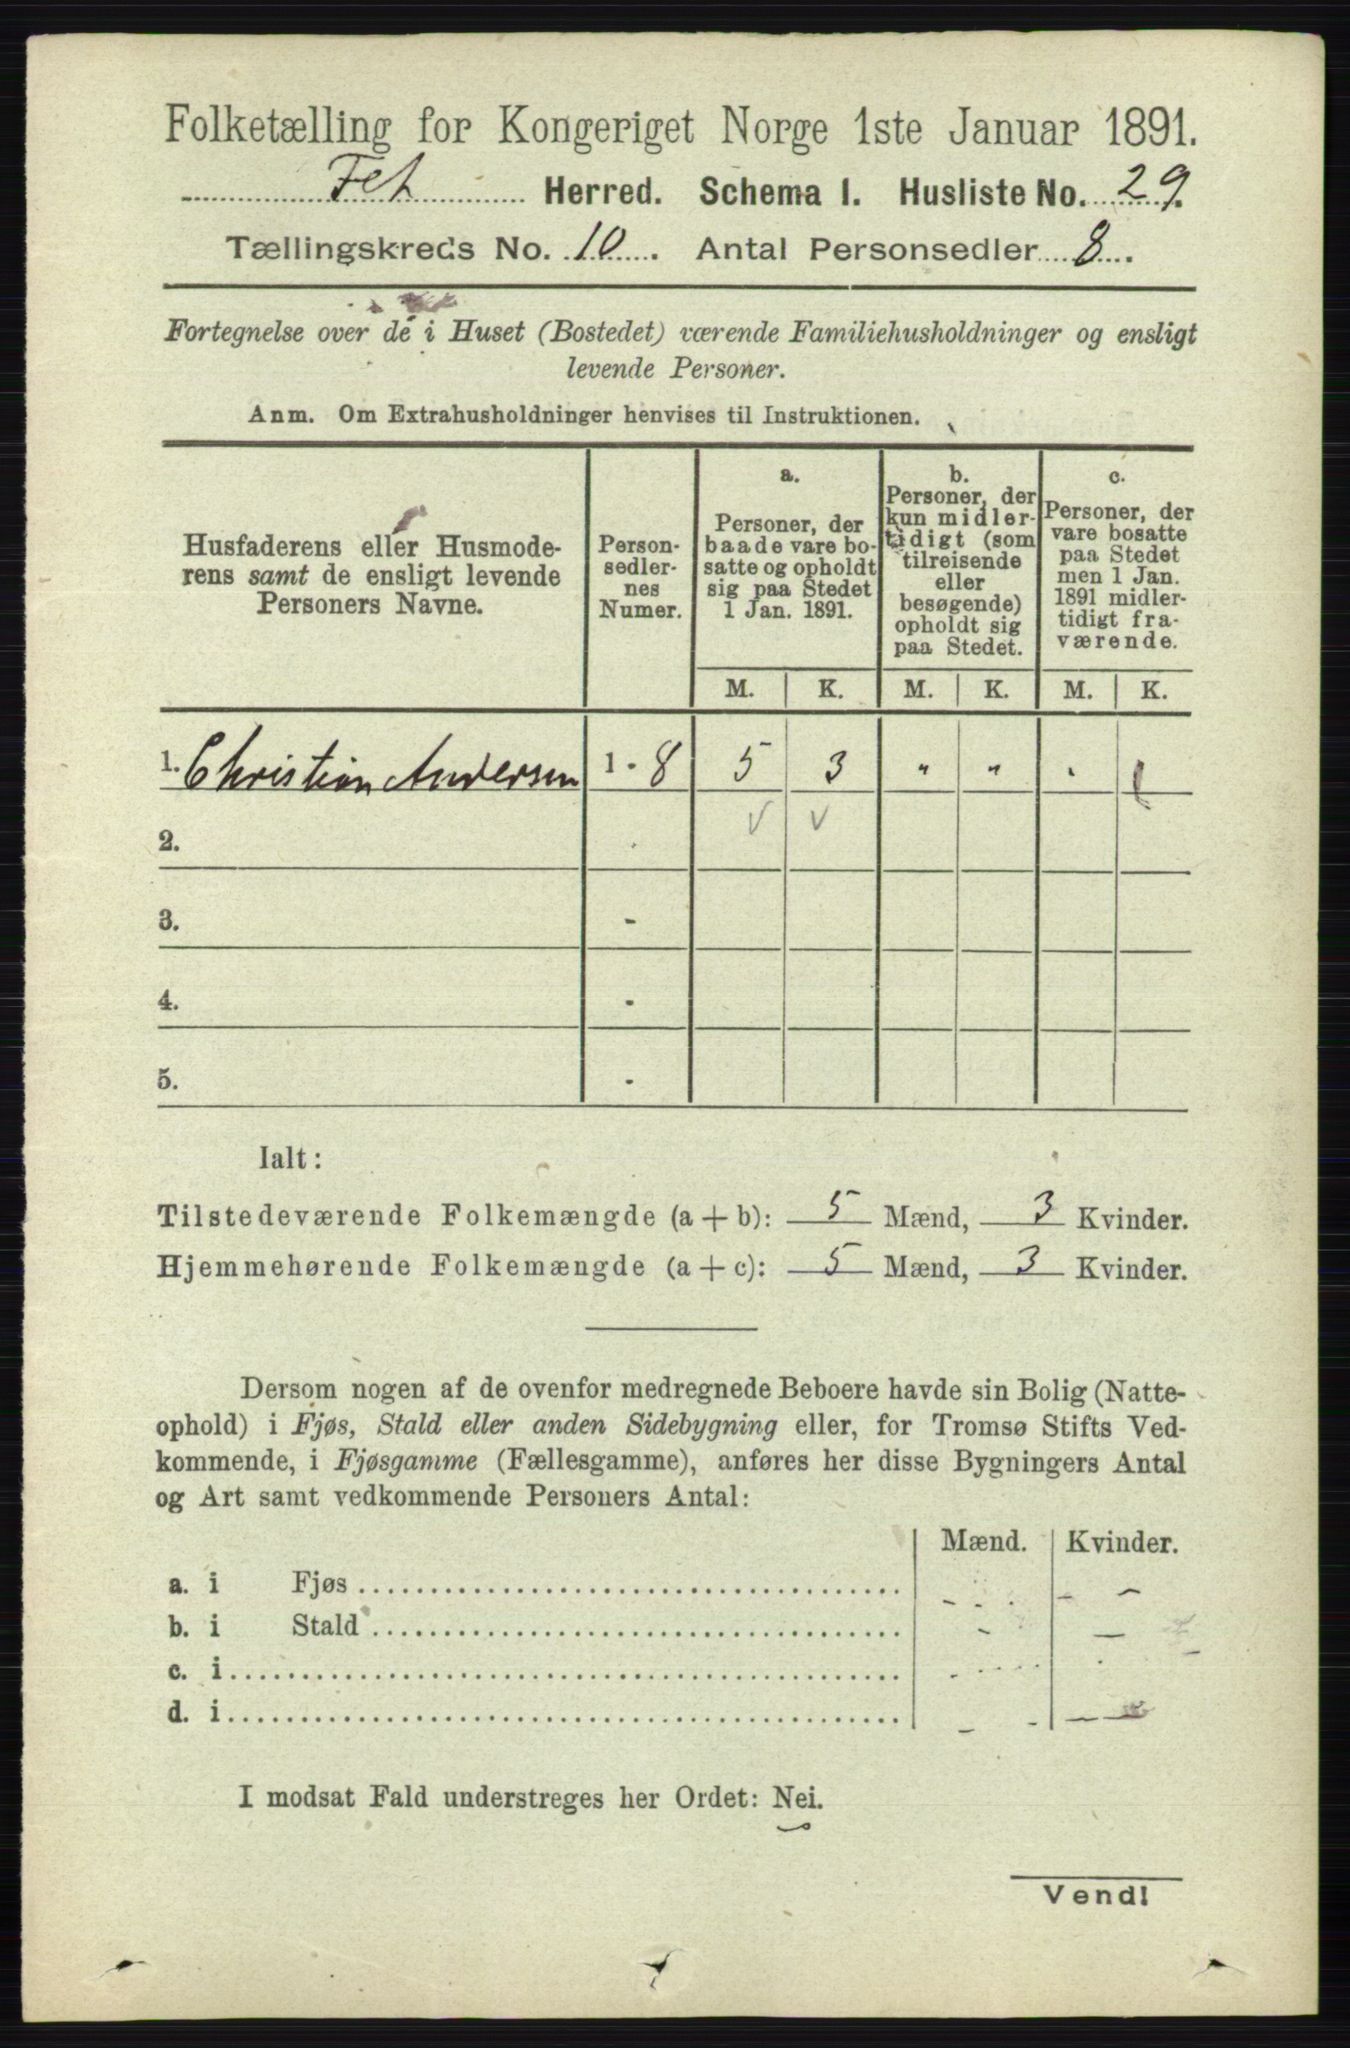 Folketælling for Kongeriget Norge 1ste Januar 1891.
Fet Herred. Schema I. Husliste No. 29.
Tællingskreds No. 10. Antal Personsedler 8.
Fortegnelse over de i Huset (Bostedet) værende Familiehusholdninger og ensligt
levende Personer.
Anm. Om Extrahusholdninger henvises til Instruktionen.
Husfaderens eller Husmode-
rens samt de ensligt levende
Personers Navne.
Person-
sedler-
nes
Numer.
a.
Personer, der
baade vare bo-
satte og opholdt
sig paa Stedet
1 Jan. 1891.
b.
Personer, der
kun midler-
tidigt (som
tilreisende
eller
besøgende)
opholdt sig
paa Stedet.
c.
Personer, der
vare bosatte
paa Stedet
men 1 Jan.
1891 midler-
tidigt fra-
værende.
M. K. M. K. M. K.
1. Christian Andersen 1 - 8 5 3 " " "
2. -
3. -
4. -
5. -
Ialt:
Tilstedeværende Folkemængde (a + b): 5 Mænd, 3 Kvinder.
Hjemmehørende Folkemængde (a + c): 5 Mænd, 3 Kvinder.
Dersom nogen af de ovenfor medregnede Beboere havde sin Bolig (Natte-
ophold) i Fjøs, Stald eller anden Sidebygning eller, for Tromsø Stifts Ved-
kommende, i Fjøsgamme (Fællesgamme), anføres her disse Bygningers Antal
og Art samt vedkommende Personers Antal:
Mænd. Kvinder.
a. i Fjøs - -
b. i Stald - -
c. i
d. i - -
I modsat Fald understreges her Ordet: Nei.
Vend!